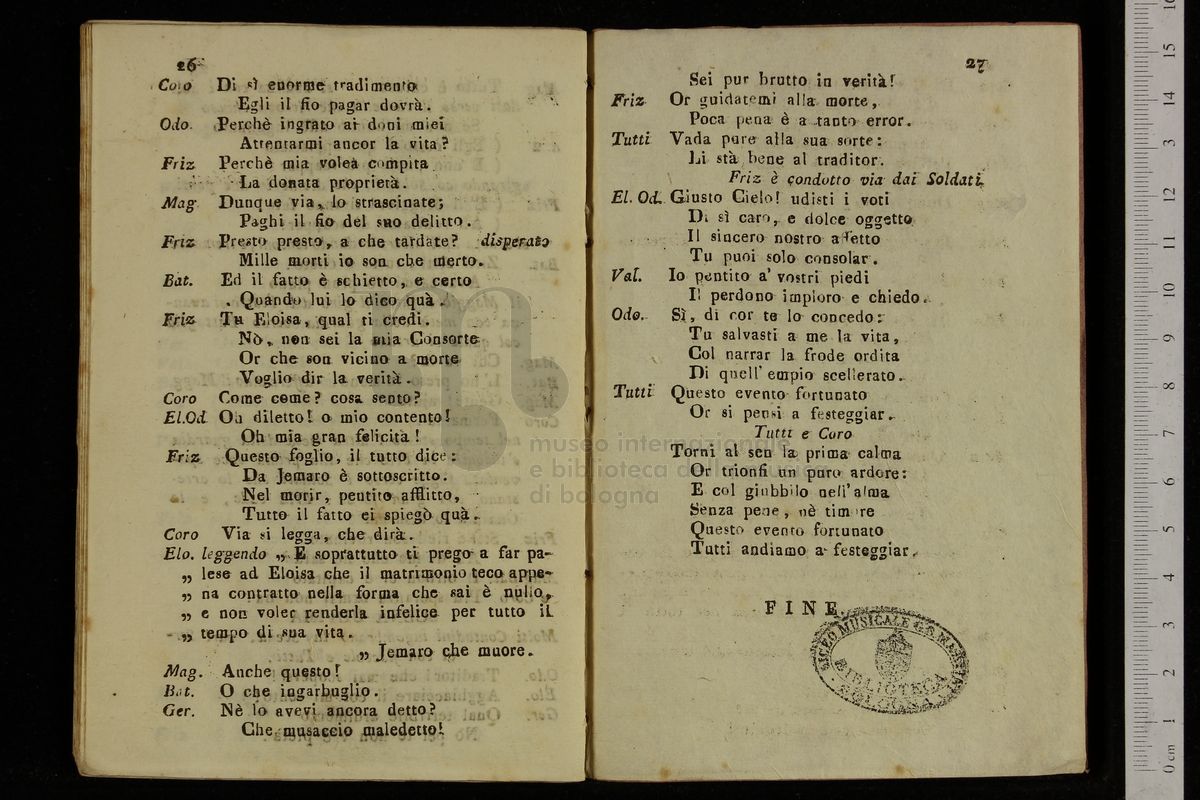 26
Coro Di sì enorme tradimento
Egli il fio pagar dovrà.
Odo. Perchè ingrato ai doni miei
Attentarmi ancor la vita?
Friz Perchè mia volea compita
La donata proprietà.
Mag Dunque via, lo strascinate;
Paghi il fio del suo delitto.
Friz Presto presto, a che tardate? disperato
Mille morti io son che merto.
Bat. Ed il fatto è schietto, e certo
Quando lui lo dico quà.
Friz Tu Eloisa, qual ti credi.
Nò, non sei la mia Consorte
Or che son vicino a morte
Voglio dir la verità.
Coro Come come? cosa sento?
El.Od Oh diletto! o mio contento!
Oh mia gran felicità!
Friz Questo foglio, il tutto dice:
Da Jemaro è sottoscritto.
Nel morir, pentito afflitto,
Tutto il fatto ei spiegò quà.
Coro Via si legga, che dirà.
Elo. leggendo „ E soprattutto ti prego a far pa-
„ lese ad Eloisa che il matrimonio teco appe-
„ na contratto nella forma che sai è nullo,
„ e non voler renderla infelice per tutto il
„ tempo di sua vita.
„ Jemaro che muore.
Mag. Anche questo!
Bat. O che ingarbuglio.
Ger. Nè lo avevi ancora detto?
Che musaccio maledetto!
27
Sei pur brutto in verità!
Friz Or guidatemi alla morte,
Poca pena è a tanto error.
Tutti Vada pure alla sua sorte:
Li stà bene al traditor.
Friz è condotto via dai Soldati.
El. Od. Giusto Cielo! udisti i voti
Di sì caro, e dolce oggetto
Il sincero nostro affetto
Tu puoi solo consolar.
Val. Io pentito a' vostri piedi
Il perdono imploro e chiedo.
Odo. Sì, di cor te lo concedo:
Tu salvasti a me la vita,
Col narrar la frode ordita
Di quell' empio scellerato.
Tutti Questo evento fortunato
Or si pensi a festeggiar.
Tutti e Coro
Torni al sen la prima calma
Or trionfi un puro ardore:
E col giubbilo nell'alma
Senza pene, nè timore
Questo evento fortunato
Tutti andiamo a festeggiar.
FINE.
LICEO MUSICALE G.B. MARTINI
BIBLIOTECA
BOLOGNA
museo internazionale
e biblioteca della musica
di bologna